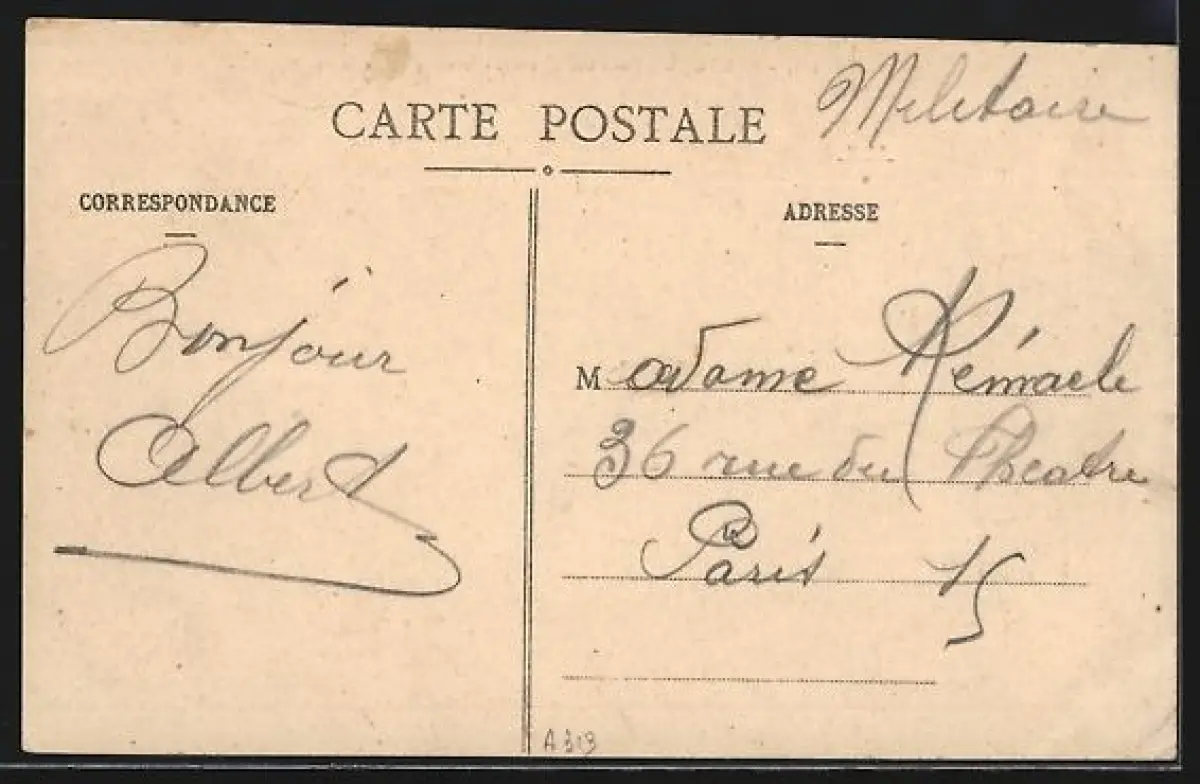 CARTE POSTALE
Militaire
CORRESPONDANCE
Bonjour
Albert
ADRESSE
Madame Rémacle
36 rue du Theatre
Paris 15
A 319